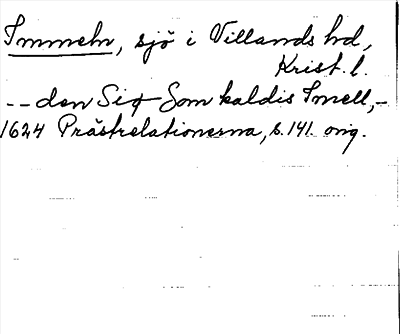 Immeln, sjö i Villands hd,
Krist. l.
-- den Siø Som kaldis Imell,-
1624 Prästrelationerna, s. 141. orig.